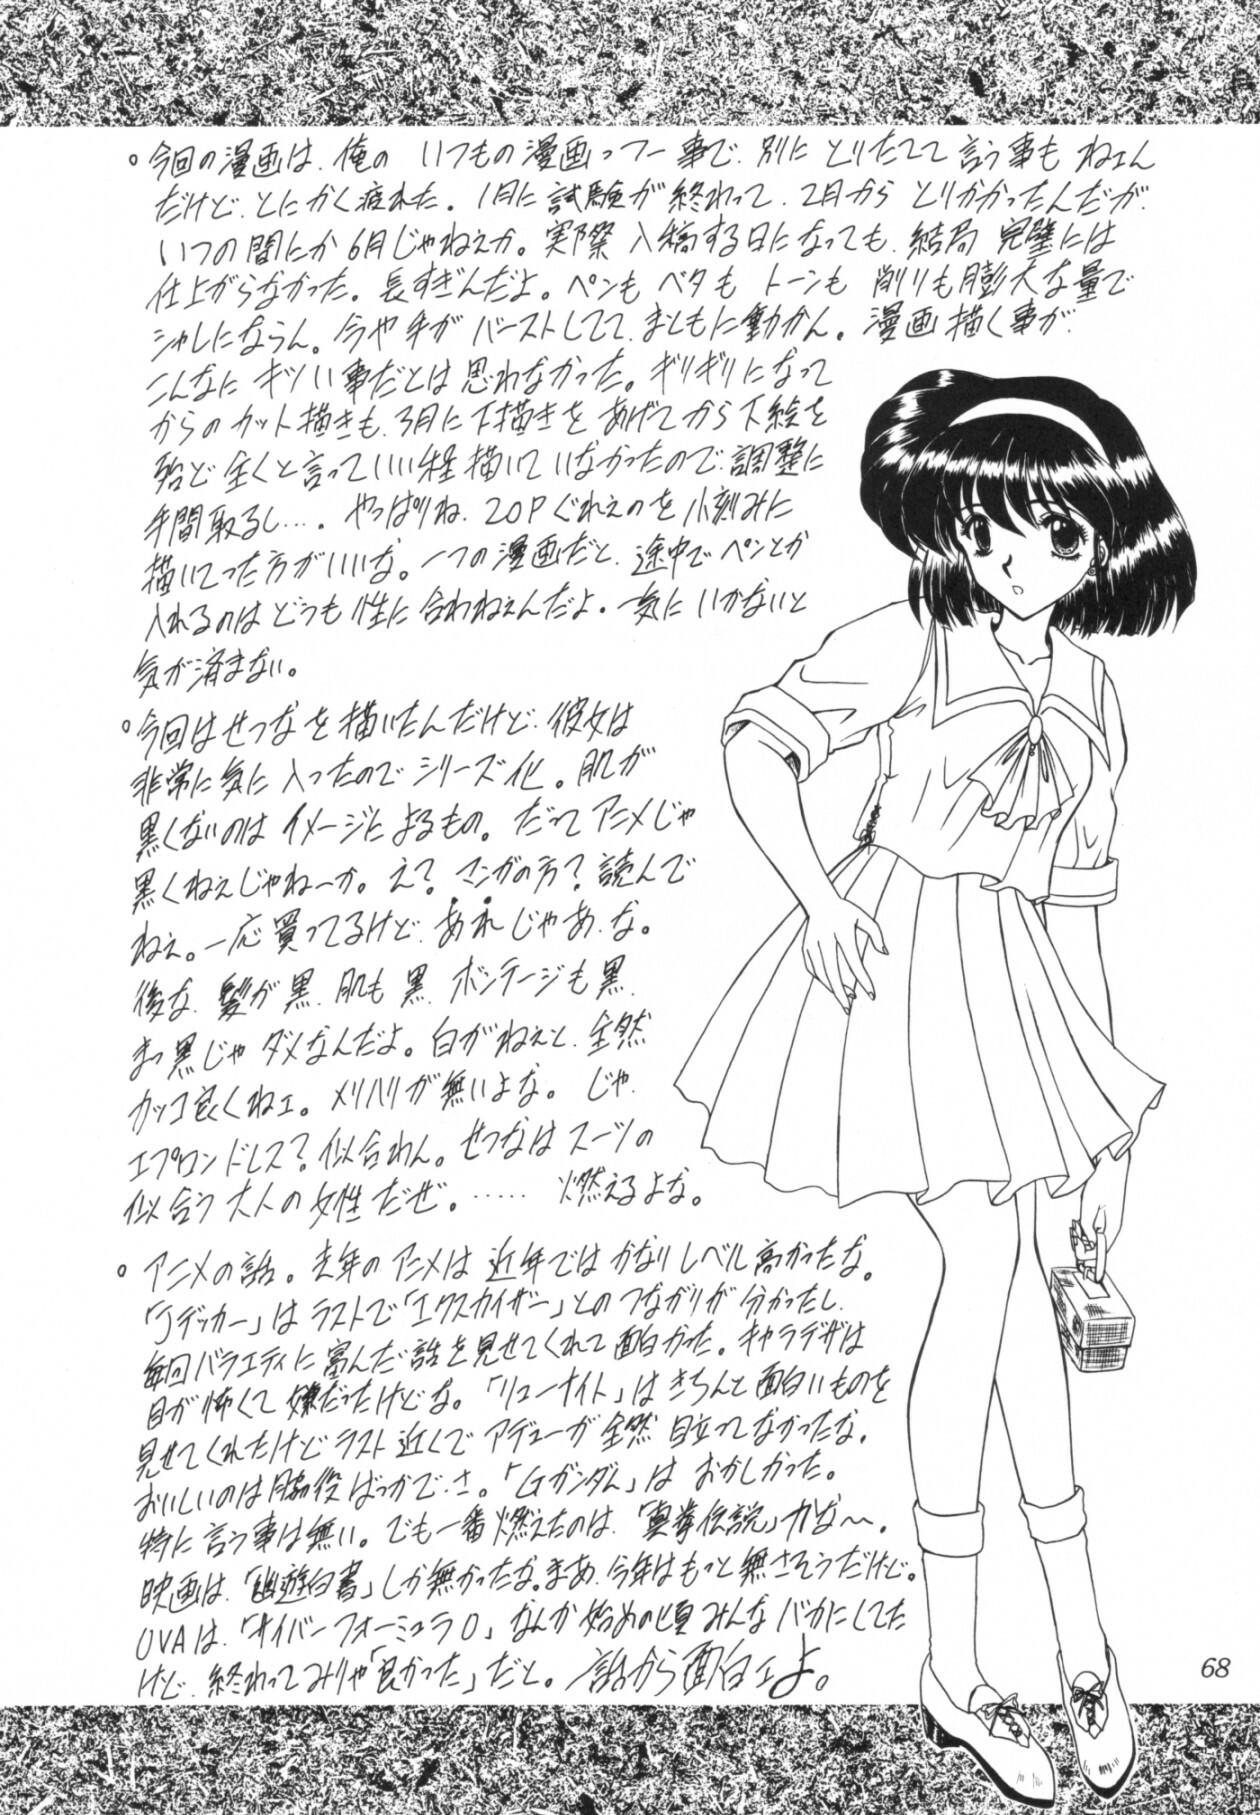 。今回の漫画は、俺の いつもの漫画っつー事で、別に とりたてて 言う事も ねェん
だけど、とにかく疲れた。1月に 試験が 終わって、2月から とりかかったんだが、
いつの間にか 6月じゃねぇか。実際 入稿する日になっても、結局 完璧には
仕上がらなかった。長すぎんだよ。ペンも ベタも トーンも 削りも膨大な量で
シャレにならん。今や手が バーストしてて、まともに動かん。漫画描く事が、
こんなに キツい事だとは 思わなかった。ギリギリになって
からの カット描きも、3月に下描きを あげてから下絵を
殆ど全くと言っていい程 描いていなかったので、調整に
手間取るし…。やっぱりね、20Pぐれぇのを 小刻みに
描いてった方がいいな。一つの漫画だと、途中で ペンとか
入れるのは どうも 性に合わねぇんだよ。一気に いかないと
気が済まない。
。今回はせつなを描いたんだけど、彼女は
非常に気に入ったので シリーズ化。肌が
黒くないのは イメージによるもの。だって アニメじゃ
黒くねぇじゃねーか。え? マンガの方? 読んで
ねぇ。一応買ってるけど、あれじゃあ、な。
後な、髪が黒、肌も黒、ボンテージも黒、
まっ黒じゃ ダメなんだよ。白がねぇと、全然
カッコ良くねェ。メリハリが無いよな。じゃ、
エプロンドレス? 似合わん。せつなはスーツの
似合う 大人の女性だぜ。…… 燃えるよな。
。アニメの話。去年の アニメは 近年では かなりレベル高かったな。
「Jデッカー」はラストで「エクスカイザー」とのつながりが分かったし、
毎回バラエティに富んだ話を見せてくれて面白かった。キャラデザは
目が怖くて嫌だったけどな。「リューナイト」はきちんと面白いものを
見せてくれたけどラスト近くで アデューが全然 目立ってなかったな。
おいしいのは脇役ばっかでさ。「Gガンダム」は おかしかった。
特に言う事は無い。でも一番燃えたのは、「真拳伝説」かな〜。
映画は、「幽遊白書」しか無かったな。まあ、今年はもっと無さそうだけど。
OVAは、「サイバーフォーミュラ0」、なんか始めの頃みんなバカにしてた
けど、終わってみりゃ「良かった」だと。話から面白ェよ。
68